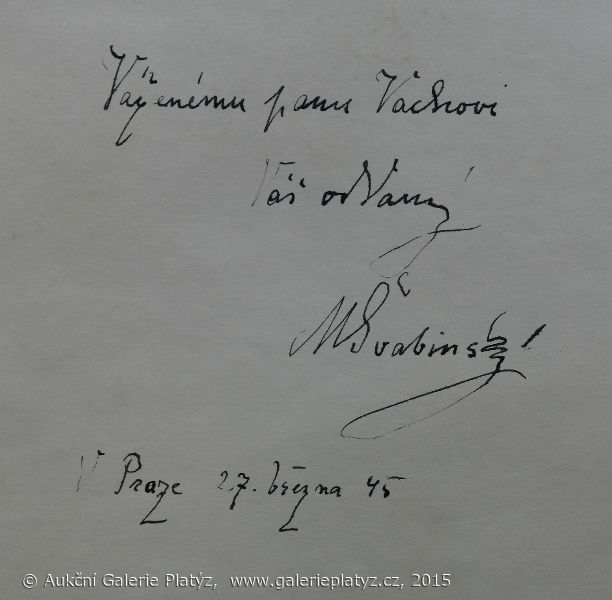 Váženému panu Váchovi
Váš oddaný
MŠvabinský
V Praze 27. března 45
© Aukční Galerie Platýz, www.galerieplatyz.cz, 2015